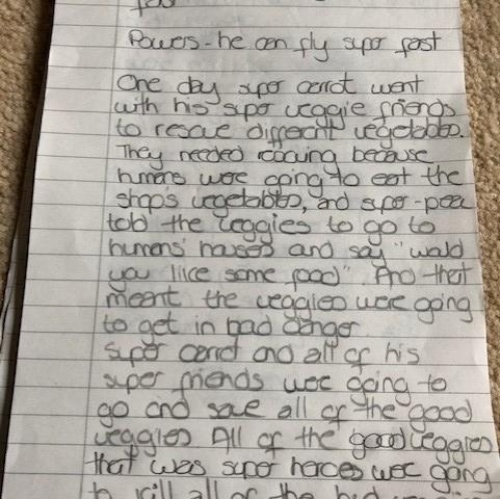 Powers - he can fly super fast
One day super carrot went
with his super veggie friends
to rescue different vegetables.
They needed rescuing because
humans were going to eat the
shop's vegetables, and super-pea
told the veggies to go to
humans' houses and say "would
you like some food". And that
meant the veggies were going
to get in bad danger
super carrot and all of his
super friends were going to
go and save all of the good
veggies All of the good veggies
that was super heroes were going
to kill all of the bad